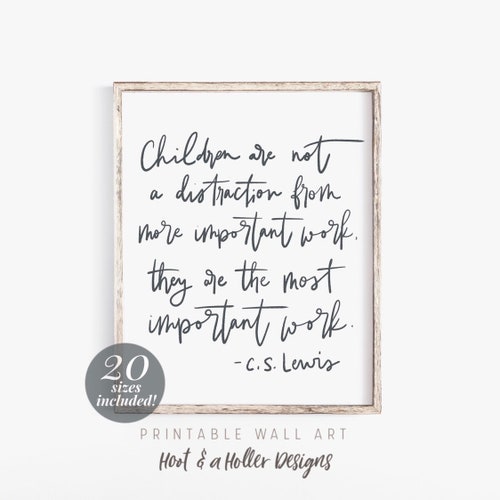 Children are not
a distraction from
more important work.
they are the most
important work.
-C.S. Lewis
20
sizes
included!
PRINTABLE WALL ART
Hoot & a Holler Designs